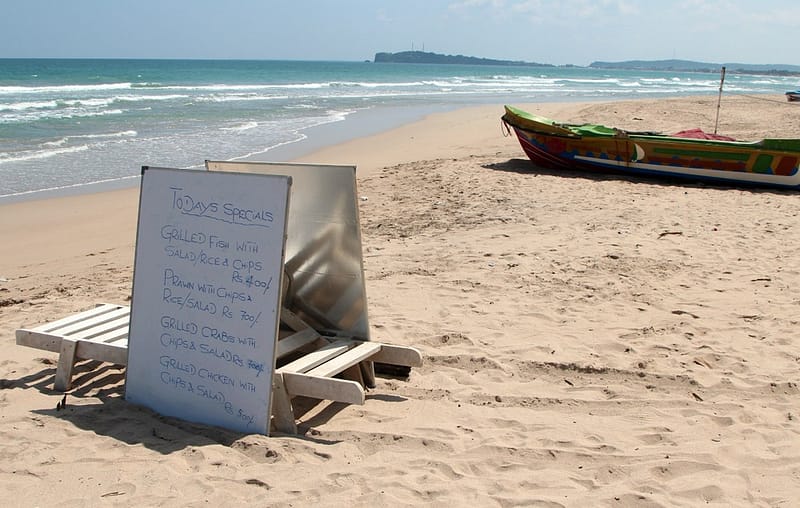 TODAYS SPECIALS
GRILLED FISH WITH
SALAD/RICE & CHIPS
RS 400/
PRAWN WITH CHIPS &
RICE/SALAD RS 700/
GRILLED CRABS WITH
CHIPS & SALAD RS
GRILLED CHICKEN WITH
CHIPS & SALAD
RS